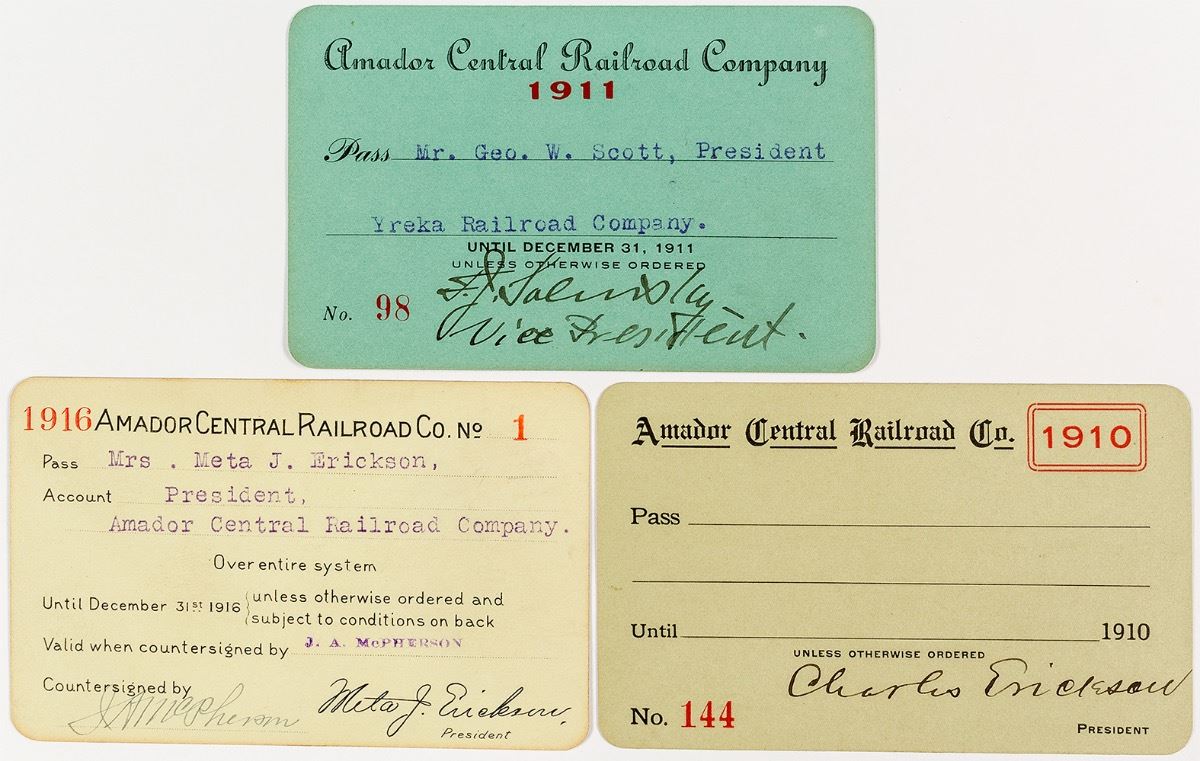 Amador Central Railroad Company
1911
Pass Mr. Geo. W. Scott, President
Yreka Railroad Company.
UNTIL DECEMBER 31, 1911
UNLESS OTHERWISE ORDERED
No. 98
Vice President.
1916 AMADOR CENTRAL RAILROAD CO. No 1
Pass Mrs . Meta J. Erickson,
Account President,
Amador Central Railroad Company.
Over entire system
Until December 31st 1916 unless otherwise ordered and
subject to conditions on back
Valid when countersigned by J. A. McPHERSON
Countersigned by
J A McPherson Meta J. Erickson.
President
Amador Central Railroad Co. 1910
Pass
Until 1910
UNLESS OTHERWISE ORDERED
Charles Erickson
No. 144
PRESIDENT